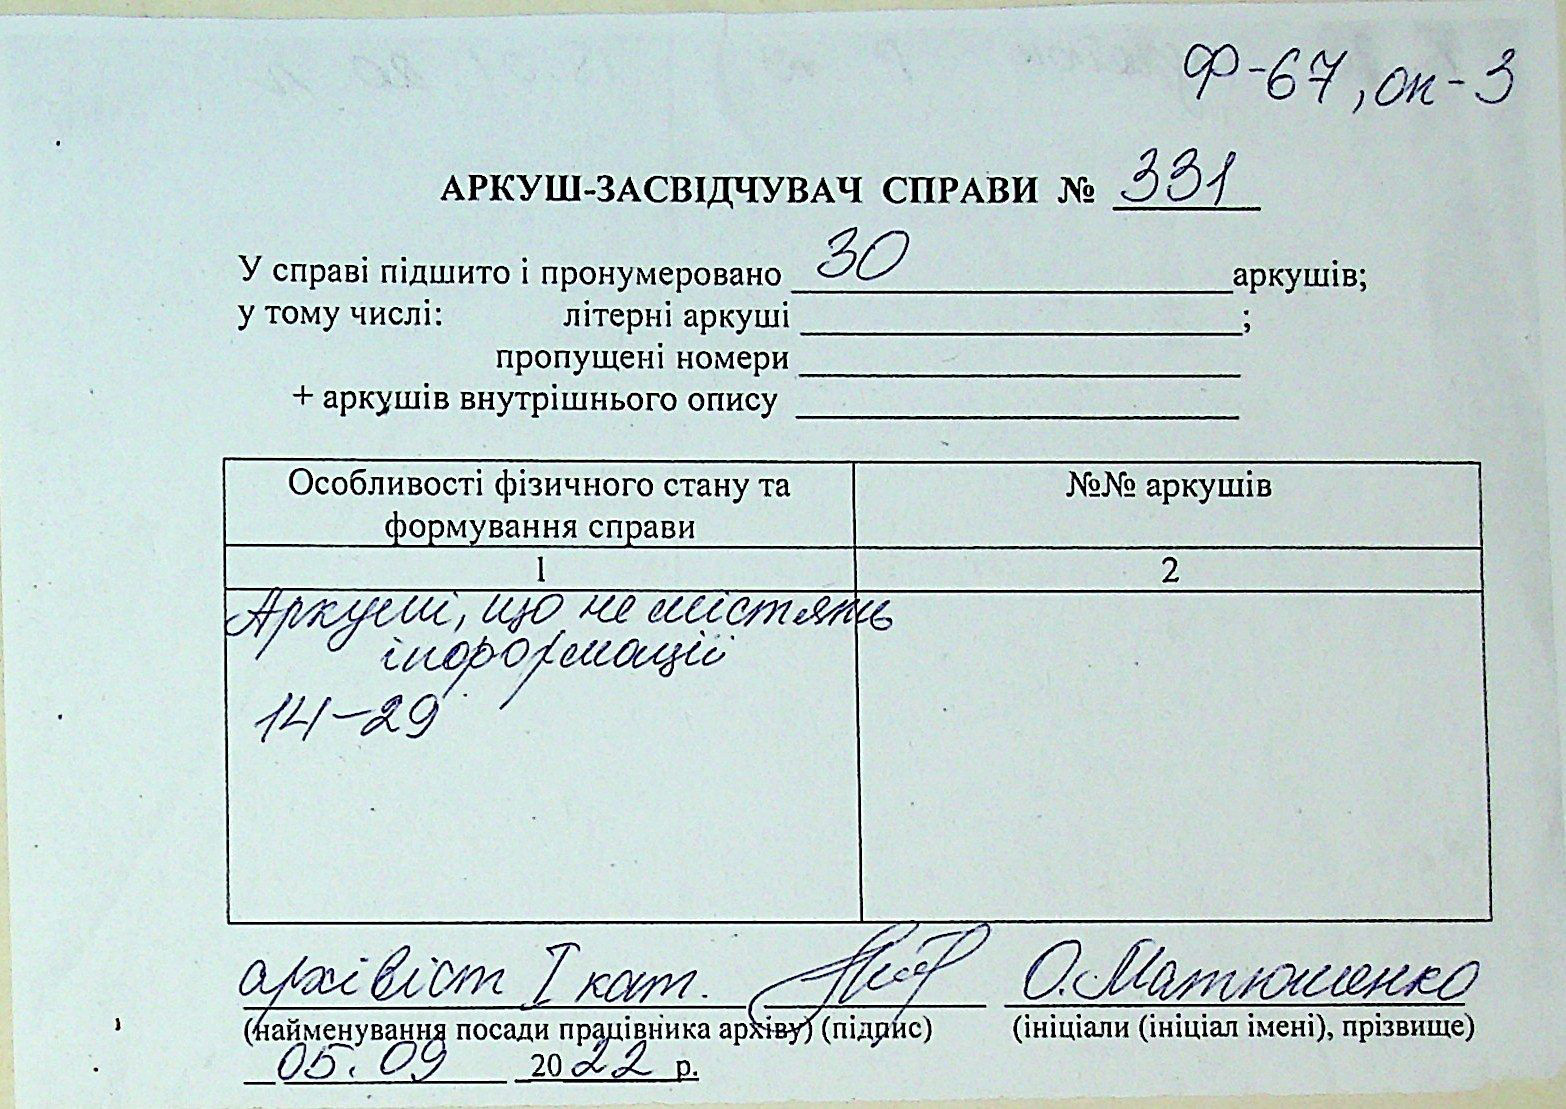 Ф-67, оп-3
АРКУШ-ЗАСВІДЧУВАЧ СПРАВИ № 331
У справі підшито і пронумеровано 30 аркушів;
у тому числі: літерні аркуші ;
пропущені номери
+ аркушів внутрішнього опису
Особливості фізичного стану та формування справи
№№ аркушів
1 2
Аркуші, що не містять
інформації
14-29
архівіст І кат. О. Матюшенко
(найменування посади працівника архіву) (підпис) (ініціали (ініціал імені), прізвище)
05. 09 2022 р.